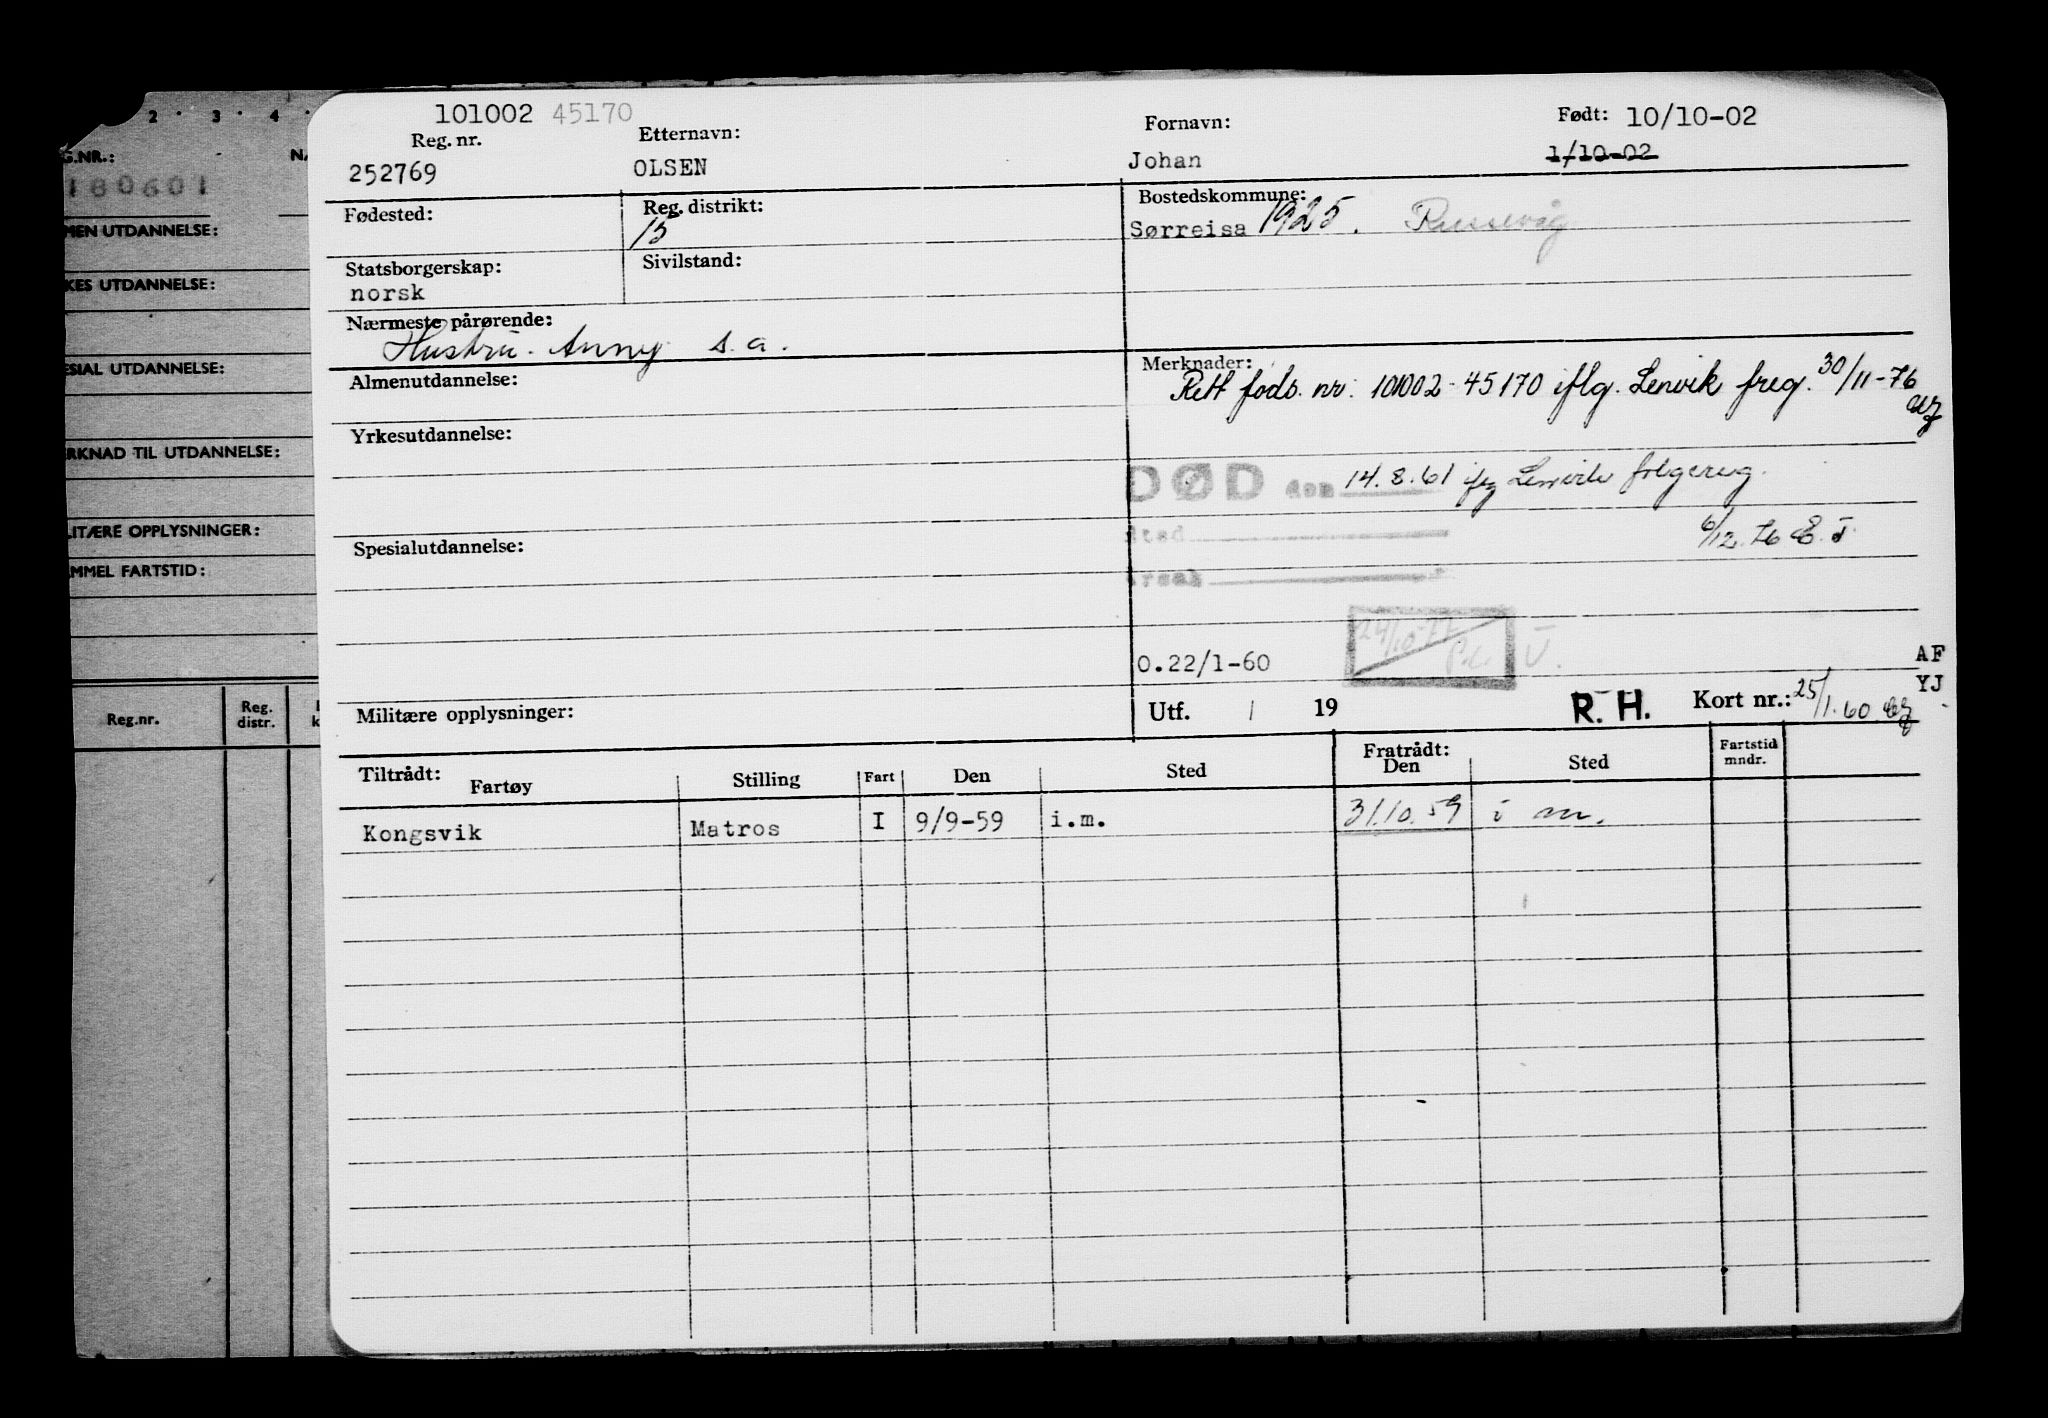 2 · 3 · 4 ·
G.NR.:
180601
MEN UTDANNELSE:
KES UTDANNELSE:
ESIAL UTDANNELSE:
ERKNAD TIL UTDANNELSE:
LITÆRE OPPLYSNINGER:
MMEL FARTSTID:
Reg.nr. Reg. distr.
101002 45170
Reg. nr. Etternavn: Fornavn: Født: 10/10-02
252769 OLSEN Johan 1/10-02
Fødested: Reg. distrikt: Bostedskommune:
15 Sørreisa 1925. Russevåg
Statsborgerskap: Sivilstand:
norsk
Nærmeste pårørende:
Hustru. Anny s.a.
Almenutdannelse: Merknader:
Rett føds. nr: 101002-45170 iflg. Lenvik freg. 30/11-76
Yrkesutdannelse:
DØD den 14.8.61 ifg Lenvik folgereg.
sted
6/12.76 E.J.
Spesialutdannelse:
årsak
24/10-77
0.22/1-60 AF
YJ
Militære opplysninger: Utf. / 19 R. H. Kort nr.: 25/1.60
Tiltrådt: Fratrådt:
Fartøy Stilling Fart Den Sted Den Sted Fartstid mndr.
Kongsvik Matros I 9/9-59 i.m. 31.10.59 i m.